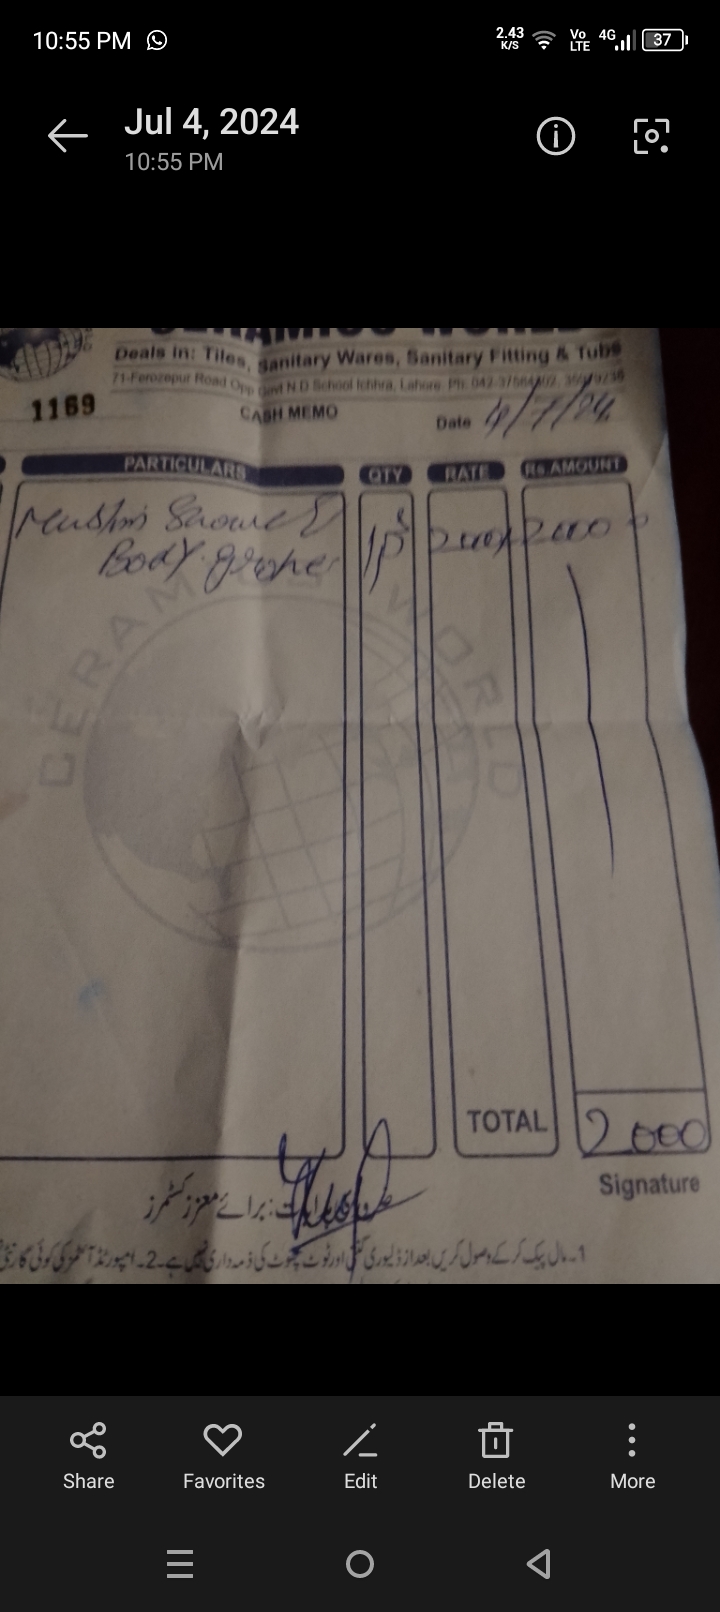 10:55 PM
2.43 K/S Vo LTE 4G 37
Jul 4, 2024
10:55 PM
CERAMICS WORLD
Deals in: Tiles, Sanitary Wares, Sanitary Fitting & Tubs
71-Ferozepur Road Opp Govt N.D School Ichhra, Lahore. Ph: 042-
1169
CASH MEMO
Date 4/7/24
PARTICULARS QTY RATE Rs.AMOUNT
Muslim Shower
Body 1 P 2000 2000
CERAMICS WORLD
TOTAL 2000
Signature
برائے معزز کسٹمرز
1۔ مال چیک کر کے وصول کریں بعد از ڈلیوری گنتی اور ٹوٹ پھوٹ کی ذمہ داری نہیں ہے۔ 2۔ امپورٹڈ آئٹمز کی کوئی گارنٹی
Share Favorites Edit Delete More